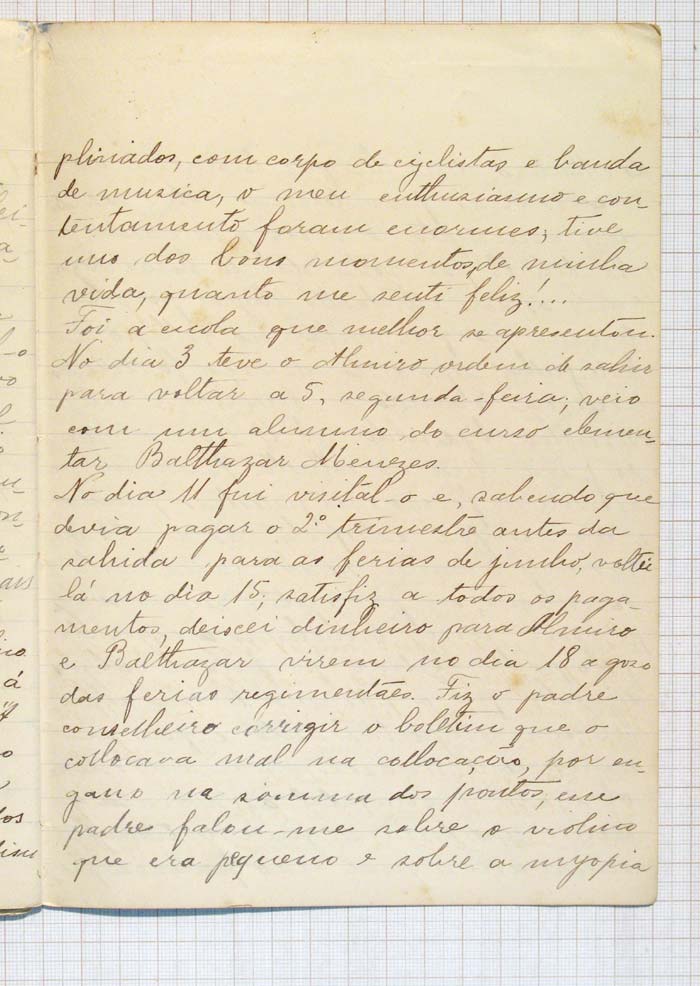 plinados, com corpo de cyclistas e banda
de muzica, o meu enthusiasmo e con-
tentamento foram enormes; tive
uno dos bons momentos, de minha
vida, quanto me senti feliz!...
Foi a escola que melhor se apresentou.
No dia 3 teve o Almiro ordem de sahir
para voltar a 5, segunda-feira; veio
com um alumno do curso elemen-
tar Balthazar Menezes.
No dia 11 fui visital-o e, sabendo que
devia pagar o 2º trimestre antes da
sahida para as ferias de junho, voltei
lá no dia 15; satisfiz a todos os paga-
mentos, deixei dinheiro para Almiro
e Balthazar virem no dia 18 a gozo
das ferias regimentães. Fiz o padre
conselheiro corrigir o boletim que o
collocava mal na collocação, por en-
gano na somma dos pontos, esse
padre falou-me sobre o violino
que era pequeno e sobre a myopia